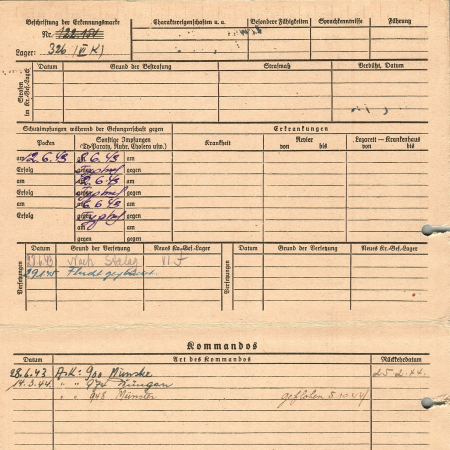 Beschriftung der Erkennungsmarke
Nr. 122.151
Lager: 326 (VI K)
Charaktereigenschaften u. a.
Besondere Fähigkeiten
Sprachkenntnisse
Führung
Strafen im Kr.-Gef.-Lager
Datum
Grund der Bestrafung
Strafmaß
Verbüßt, Datum
Schutzimpfungen während der Gefangenschaft gegen
Erkrankungen
Pocken
Sonstige Impfungen (Ty.-Paraty., Ruhr, Cholera usw.)
Krankheit
Revier
von bis
Lazarett – Krankenhaus
von bis
am 12.6.43 am 8.6.43 am
Erfolg gegen Typhus gegen
am am 2.6.43 am
Erfolg gegen Typhus gegen
am am 6.6.43 am
Erfolg gegen Typhus gegen
am am
gegen gegen
Versetzungen
Datum
Grund der Versetzung
Neues Kr.-Gef.-Lager
Versetzungen
Datum
Grund der Versetzung
Neues Kr.-Gef.-Lager
Nach Stalag VI F
Kommandos
Datum
Art des Kommandos
Rückkehrdatum
28.6.43 900 25.2.44.
14.3.44. " "
" " 948 Münster geflohen 5.10.44